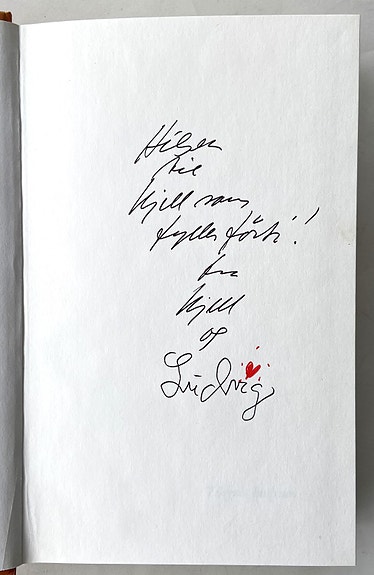 Hilsen
til
Kjell som
fyller førti!
fra
Kjell
og
Ludvig